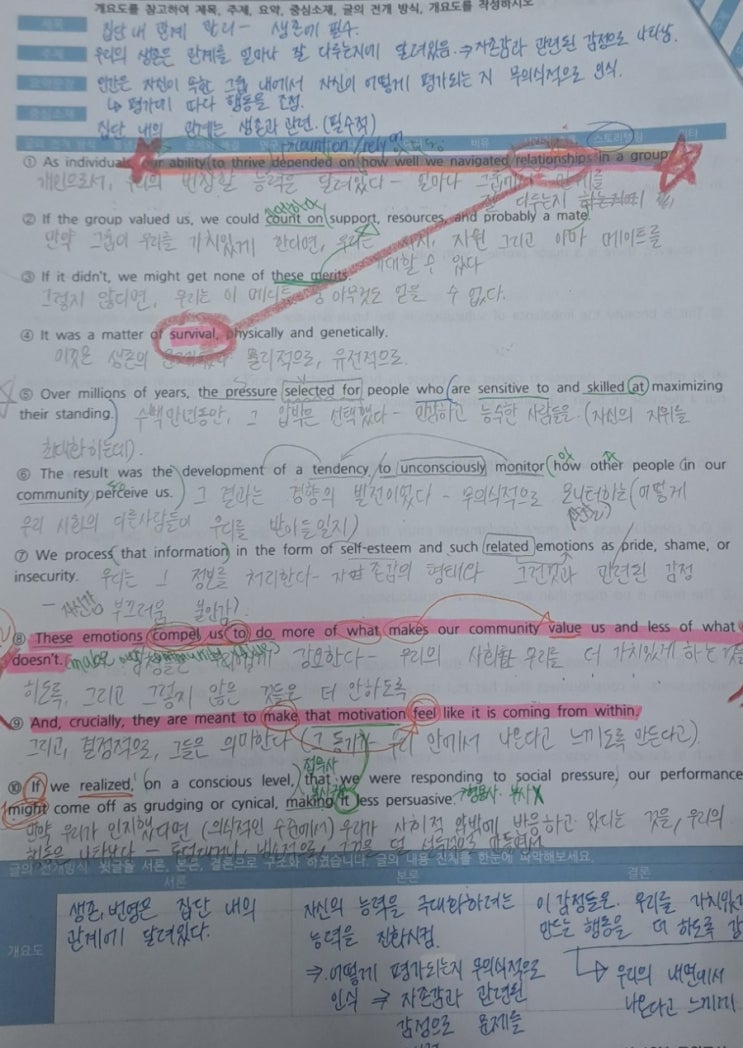 개요도를 참고하여 제목, 주제, 요약, 중심소재, 글의 전개 방식, 개요도를 작성하시오
제목 집단 내 관계 관리 - 생존에 필수.
주제 우리의 생존은 관계를 얼마나 잘 다루는지에 달려있음. ⇒ 자존감과 관련된 감정으로 나타남.
요약 인간은 자신이 속한 그룹 내에서 자신이 어떻게 평가되는 지 무의식적으로 인식.
↳ 평가에 따라 행동을 조절.
중심소재 집단 내의 관계는 생존과 관련. (필수적)
글의 전개 방식
① As individuals our ability to thrive depended on how well we navigated relationships in a group
개인으로서, 우리의 번창할 능력은 달려있다 - 얼마나 그룹에서 관계를
다루는지
② If the group valued us, we could count on support, resources, and probably a mate.
만약 그룹이 우리를 가치있게 한다면, 우리는 지지, 지원 그리고 아마 메이트를
기대할 수 있다
③ If it didn't, we might get none of these merits.
그렇지 않다면, 우리는 이 메리트 중 아무것도 얻을 수 없다.
④ It was a matter of survival, physically and genetically.
이것은 생존의 물리적으로, 유전적으로.
⑤ Over millions of years, the pressure selected for people who are sensitive to and skilled at maximizing
their standing. 수백만년동안, 그 압박은 선택했다 - 민감하고 능숙한 사람들을. (자신의 지위를
최대화하는데).
⑥ The result was the development of a tendency to unconsciously monitor how other people in our
community perceive us. 그 결과는 경향의 발전이었다 - 무의식적으로 모니터하는 (어떻게
우리 사회의 다른사람들이 우리를 받아들일지)
⑦ We process that information in the form of self-esteem and such related emotions as pride, shame, or
insecurity. 우리는 그 정보를 처리한다 - 자존감의 형태와 그런것과 관련된 감정
- 자신감 부끄러움 불안감).
⑧ These emotions compel us to do more of what makes our community value us and less of what
doesn't. 강요한다 - 우리의 사회를 우리를 더 가치있게 하는 것을
하도록, 그리고 그렇지 않은 것들은 더 안하도록
⑨ And, crucially, they are meant to make that motivation feel like it is coming from within.
그리고, 결정적으로, 그들은 의미한다 (그 동기가 우리 안에서 나온다고 느끼도록 만든다고).
접속사
⑩ If we realized, on a conscious level, that we were responding to social pressure, our performance
might come off as grudging or cynical, making it less persuasive. 형용사. 부사X
만약 우리가 인지했다면 (의식적인 수준에서) 우리가 사회적 압박에 반응하고 있다는 것을, 우리의
글의 전개방식 윗글을 서론, 본론, 결론으로 구조화 하였습니다. 글의 내용 전개를 한눈에 파악해보세요.
서론 본론 결론
개요도
생존, 번영은 집단 내의
관계에 달려있다.
자신의 능력을 극대화하려는
능력을 진화시킴.
⇒ 어떻게 평가되는지 무의식적으로
인식 ⇒ 자존감과 관련된
감정으로 문제를
이 감정들은. 우리를 가치있게
만드는 행동을 더 하도록
↳ 우리의 내면에서
나온다고 느끼게